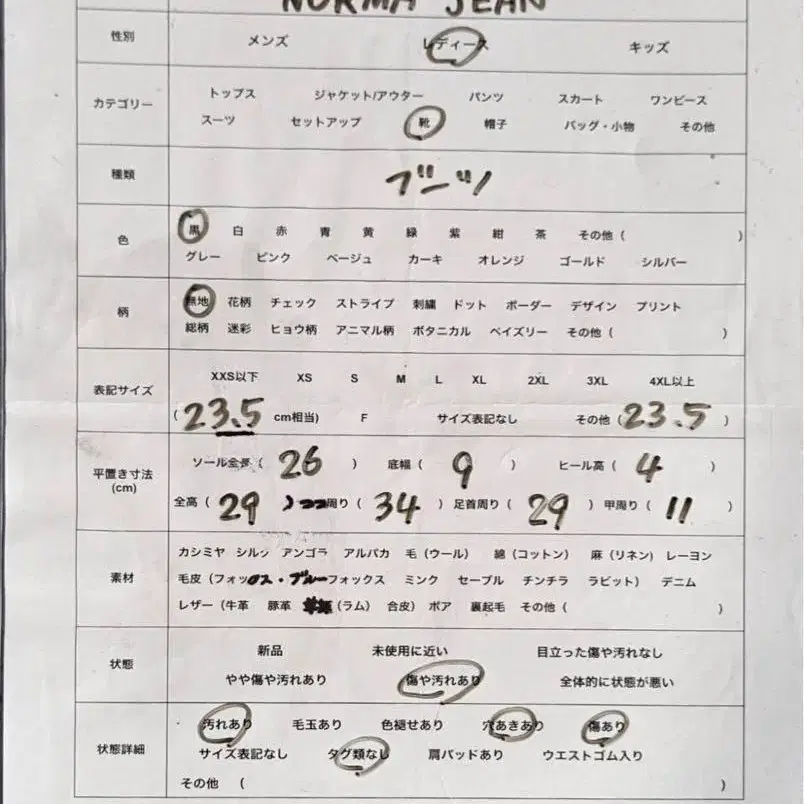 NORMA JEAN
性別 メンズ レディース キッズ
カテゴリー トップス ジャケット/アウター パンツ スカート ワンピース
スーツ セットアップ 靴 帽子 バッグ・小物 その他
種類 ブーツ
色 黒 白 赤 青 黄 緑 紫 紺 茶 その他 ( )
グレー ピンク ベージュ カーキ オレンジ ゴールド シルバー
柄 無地 花柄 チェック ストライプ 刺繍 ドット ボーダー デザイン プリント
総柄 迷彩 ヒョウ柄 アニマル柄 ボタニカル ペイズリー その他 ( )
表記サイズ XXS以下 XS S M L XL 2XL 3XL 4XL以上
( 23.5 cm相当) F サイズ表記なし その他 ( 23.5 )
平置き寸法 (cm) ソール全長 ( 26 ) 底幅 ( 9 ) ヒール高 ( 4 )
全高 ( 29 ) 周り ( 34 ) 足首周り ( 29 ) 甲周り ( 11 )
素材 カシミヤ シルク アンゴラ アルパカ 毛 (ウール) 綿 (コットン) 麻 (リネン) レーヨン
毛皮 (フォックス・ブルーフォックス ミンク セーブル チンチラ ラビット) デニム
レザー (牛革 豚革 (ラム) 合皮) ボア 裏起毛 その他 ( )
状態 新品 未使用に近い 目立った傷や汚れなし
やや傷や汚れあり 傷や汚れあり 全体的に状態が悪い
状態詳細 汚れあり 毛玉あり 色褪せあり 穴あきあり 傷あり
サイズ表記なし タグ類なし 肩パッドあり ウエストゴム入り
その他 ( )